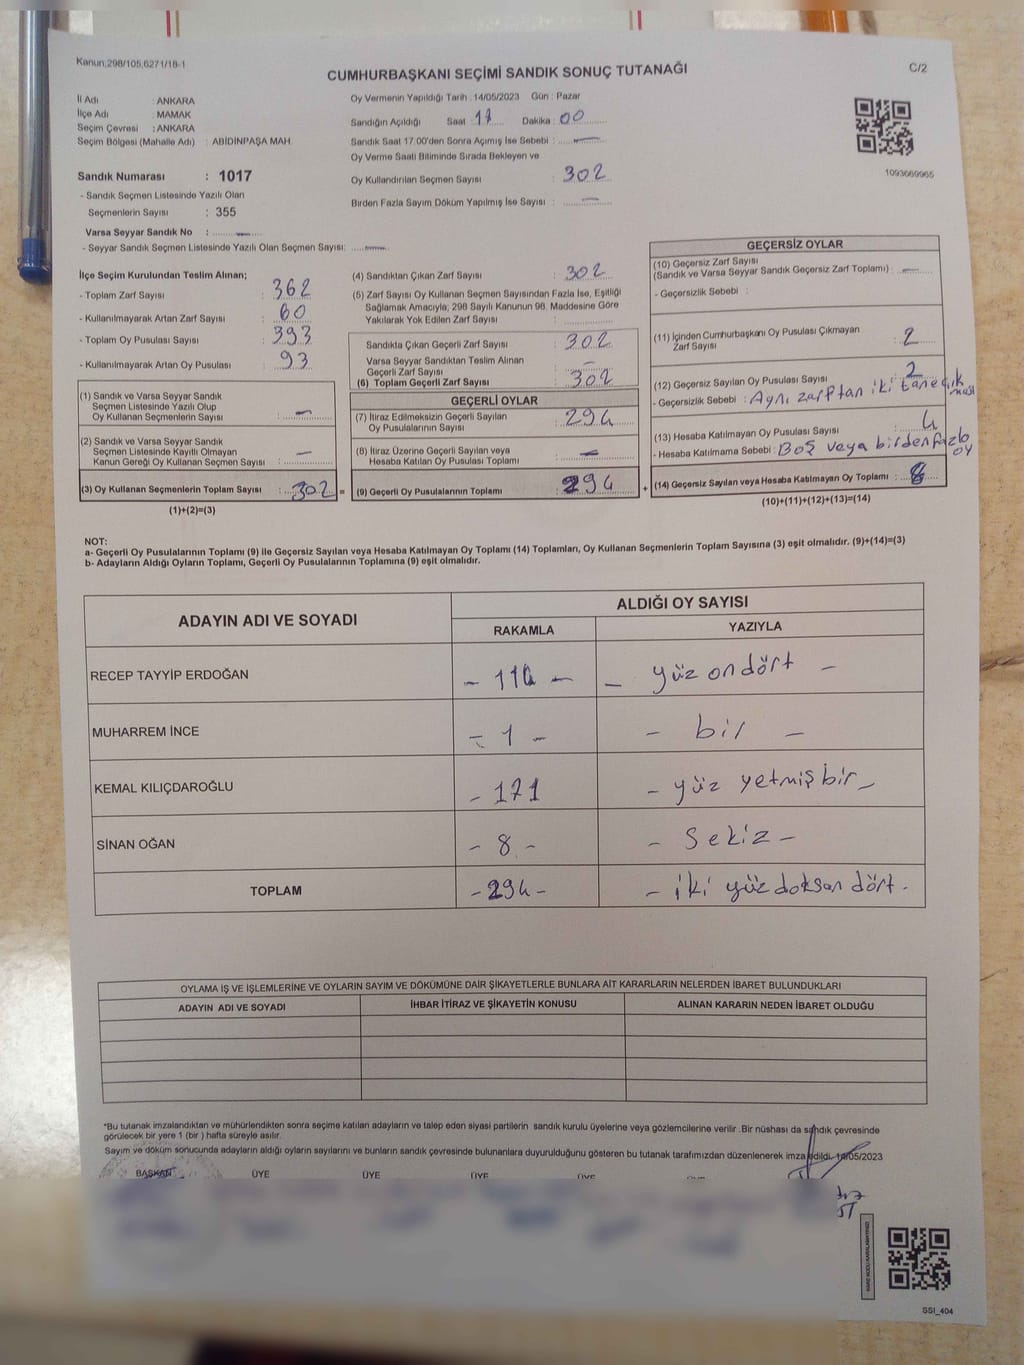 Kanun;298/105,6271/18-1
CUMHURBAŞKANI SEÇİMİ SANDIK SONUÇ TUTANAĞI
C/2
İl Adı : ANKARA
İlçe Adı : MAMAK
Seçim Çevresi : ANKARA
Seçim Bölgesi (Mahalle Adı) : ABİDİNPAŞA MAH.
Sandık Numarası : 1017
- Sandık Seçmen Listesinde Yazılı Olan
Seçmenlerin Sayısı : 355
Varsa Seyyar Sandık No : —
- Seyyar Sandık Seçmen Listesinde Yazılı Olan Seçmen Sayısı: —
Oy Vermenin Yapıldığı Tarih : 14/05/2023 Gün : Pazar
Sandığın Açıldığı Saat 17 Dakika : 00
Sandık Saat 17.00'den Sonra Açılmış İse Sebebi : —
Oy Verme Saati Bitiminde Sırada Bekleyen ve
Oy Kullandırılan Seçmen Sayısı : 302
Birden Fazla Sayım Döküm Yapılmış İse Sayısı : —
1093669965
İlçe Seçim Kurulundan Teslim Alınan;
- Toplam Zarf Sayısı : 362
- Kullanılmayarak Artan Zarf Sayısı : 60
- Toplam Oy Pusulası Sayısı : 393
- Kullanılmayarak Artan Oy Pusulası : 93
(1) Sandık ve Varsa Seyyar Sandık
Seçmen Listesinde Yazılı Olup
Oy Kullanan Seçmenlerin Sayısı : —
(2) Sandık ve Varsa Seyyar Sandık
Seçmen Listesinde Kayıtlı Olmayan
Kanun Gereği Oy Kullanan Seçmen Sayısı : —
(3) Oy Kullanan Seçmenlerin Toplam Sayısı : 302 =
(1)+(2)=(3)
(4) Sandıktan Çıkan Zarf Sayısı : 302
(5) Zarf Sayısı Oy Kullanan Seçmen Sayısından Fazla İse, Eşitliği
Sağlamak Amacıyla; 298 Sayılı Kanunun 98. Maddesine Göre
Yakılarak Yok Edilen Zarf Sayısı :
Sandıkta Çıkan Geçerli Zarf Sayısı : 302
Varsa Seyyar Sandıktan Teslim Alınan
Geçerli Zarf Sayısı : —
(6) Toplam Geçerli Zarf Sayısı : 302
GEÇERLİ OYLAR
(7) İtiraz Edilmeksizin Geçerli Sayılan
Oy Pusulasının Sayısı : 294
(8) İtiraz Üzerine Geçerli Sayılan veya
Hesaba Katılan Oy Pusulası Toplamı : —
(9) Geçerli Oy Pusulalarının Toplamı : 294 +
GEÇERSİZ OYLAR
(10) Geçersiz Zarf Sayısı
(Sandık ve Varsa Seyyar Sandık Geçersiz Zarf Toplamı) : —
- Geçersizlik Sebebi :
(11) İçinden Cumhurbaşkanı Oy Pusulası Çıkmayan
Zarf Sayısı : 2
(12) Geçersiz Sayılan Oy Pusulası Sayısı : 2
- Geçersizlik Sebebi : Aynı zarftan iki tane çıkması
(13) Hesaba Katılmayan Oy Pusulası Sayısı : 4
- Hesaba Katılmama Sebebi : Boş veya birden fazla oy
(14) Geçersiz Sayılan veya Hesaba Katılmayan Oy Toplamı : 8
(10)+(11)+(12)+(13)=(14)
NOT:
a- Geçerli Oy Pusulalarının Toplamı (9) ile Geçersiz Sayılan veya Hesaba Katılmayan Oy Toplamı (14) Toplamları, Oy Kullanan Seçmenlerin Toplam Sayısına (3) eşit olmalıdır. (9)+(14)=(3)
b- Adayların Aldığı Oyların Toplamı, Geçerli Oy Pusulalarının Toplamına (9) eşit olmalıdır.
ADAYIN ADI VE SOYADI
ALDIĞI OY SAYISI
RAKAMLA YAZIYLA
RECEP TAYYİP ERDOĞAN - 114 - - yüz on dört -
MUHARREM İNCE - 1 - - bir -
KEMAL KILIÇDAROĞLU - 171 - yüz yetmiş bir -
SİNAN OĞAN - 8 - - Sekiz -
TOPLAM - 294 - - iki yüz doksan dört.
OYLAMA İŞ VE İŞLEMLERİNE VE OYLARIN SAYIM VE DÖKÜMÜNE DAİR ŞİKAYETLERLE BUNLARA AİT KARARLARIN NELERDEN İBARET BULUNDUKLARI
ADAYIN ADI VE SOYADI İHBAR İTİRAZ VE ŞİKAYETİN KONUSU ALINAN KARARIN NEDEN İBARET OLDUĞU
*Bu tutanak imzalandıktan ve mühürlendikten sonra seçime katılan adayların ve talep eden siyasi partilerin sandık kurulu üyelerine veya gözlemcilerine verilir. Bir nüshası da sandık çevresinde
görülecek bir yere 1 (bir ) hafta süreyle asılır.
Sayım ve döküm sonucunda adayların aldığı oyların sayılarını ve bunların sandık çevresinde bulunanlara duyurulduğunu gösteren bu tutanak tarafımızdan düzenlenerek imza edildi. 14/05/2023
BAŞKAN ÜYE ÜYE ÜYE ÜYE
SSI_404